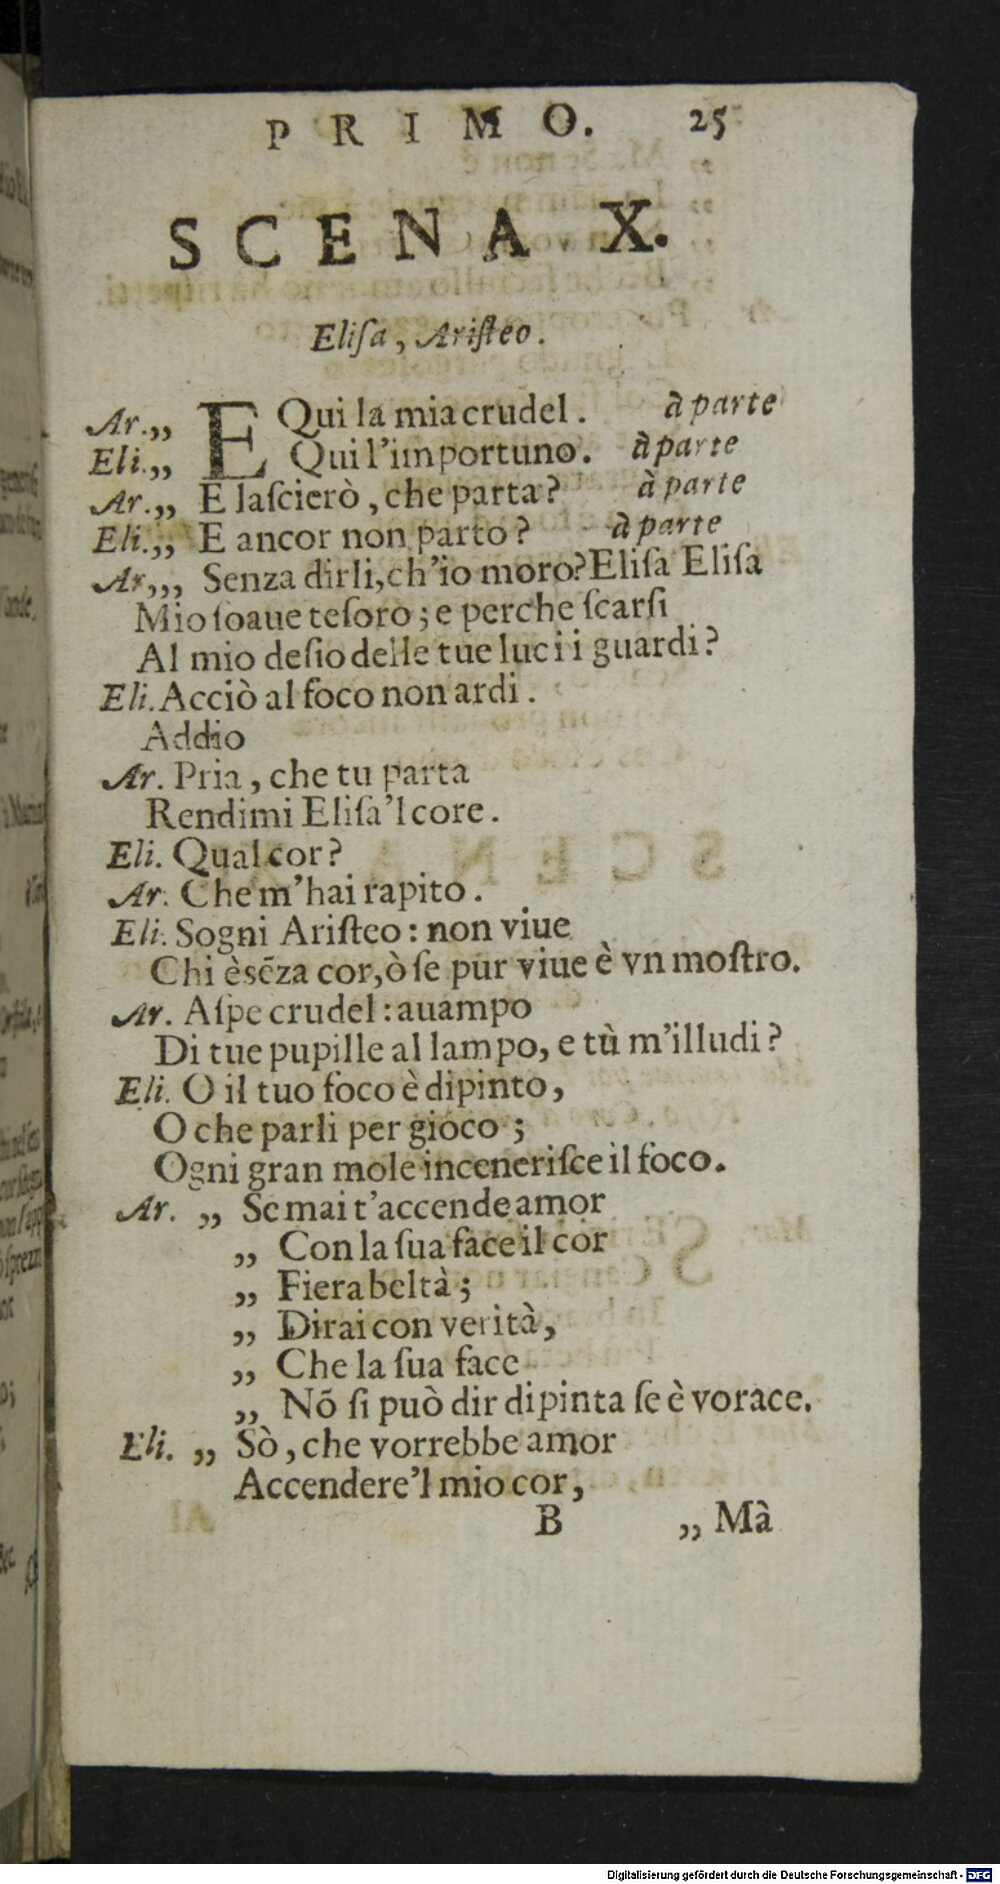 PRIMO. 25
SCENA X.
Eliſa, Ariſteo.
Ar.,, E Qui la mia crudel. à parte
Eli.,, Qui l'importuno. à parte
Ar.,, E laſcierò, che parta? à parte
Eli.,, E ancor non parto? à parte
Ar,,, Senza dirli, ch'io moro? Eliſa Eliſa
Mio ſoaue teſoro; e perche ſcarſi
Al mio deſio delle tue luci i guardi?
Eli. Acciò al foco non ardi.
Addio
Ar. Pria, che tu parta
Rendimi Eliſa'l core.
Eli. Qual cor?
Ar. Che m'hai rapito.
Eli. Sogni Ariſteo: non viue
Chi è sēza cor, ò ſe pur viue è vn moſtro.
Ar. Aſpe crudel: auampo
Di tue pupille al lampo, e tù m'illudi?
Eli. O il tuo foco è dipinto,
O che parli per gioco;
Ogni gran mole inceneriſce il foco.
Ar. ,, Se mai t'accende amor
,, Con la ſua face il cor
,, Fiera beltà;
,, Dirai con verità,
,, Che la ſua face
,, Nō ſi può dir dipinta ſe è vorace.
Eli. ,, Sò, che vorrebbe amor
Accendere'l mio cor,
B ,, Mà
Digitalisierung gefördert durch die Deutsche Forschungsgemeinschaft - DFG